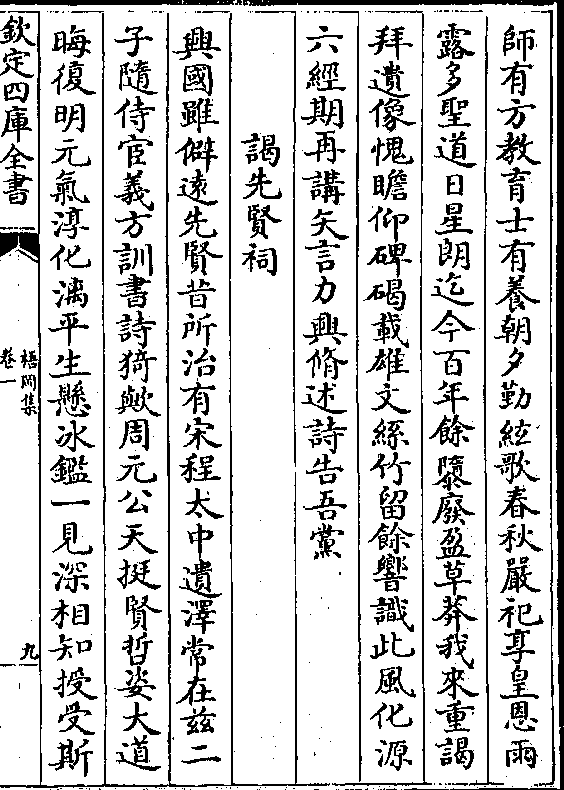 師有方教育士有養朝夕勤絃歌春秋嚴祀享皇恩雨
露多聖道日星朗迄今百年餘隳廢盈草莽我來重謁
拜遺像愧瞻仰碑碣載雄文絲竹留餘響識此風化源
六經期再講矢言力興脩述詩告吾黨
謁先賢祠
興國雖僻遠先賢昔所治有宋程太中遺澤常在兹二
子隨侍宦義方訓書詩猗歟周元公天挺賢哲姿大道
晦復明元氣淳化漓平生懸冰鑑一見深相知授受斯
欽定四庫全書
梧岡集
卷一
九